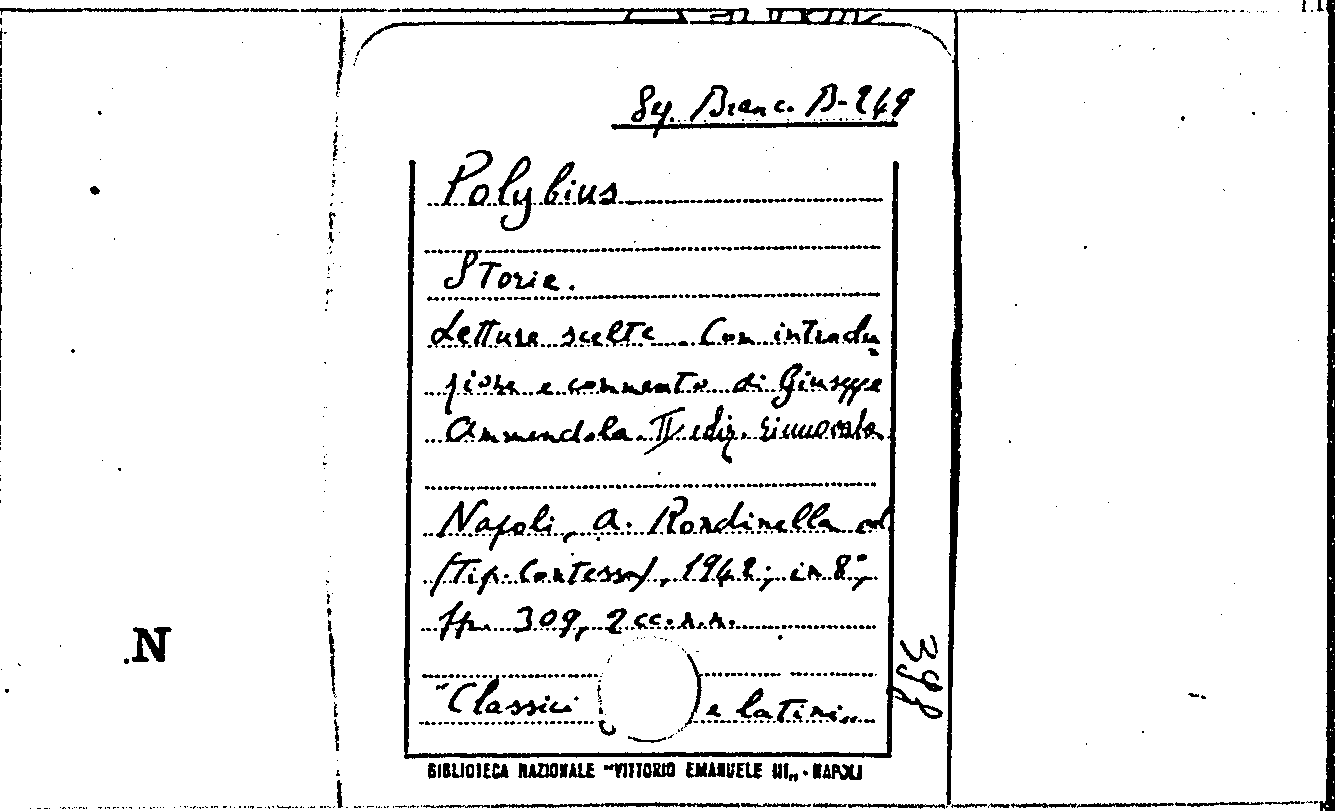 Sy. Branc. B-249
Polybius
Storie.
Letture scelte. Con introdu=
zione e commento di Giuseppe
Ammendola. II ediz. rinnovata
Napoli, A. Rondinella ed
(Tip. Contessa), 1942; in 8°,
pp. 309, 2 cc.n.n.
"Classici e latini„
398
N
BIBLIOTECA NAZIONALE "VITTORIO EMANUELE III„ - NAPOLI